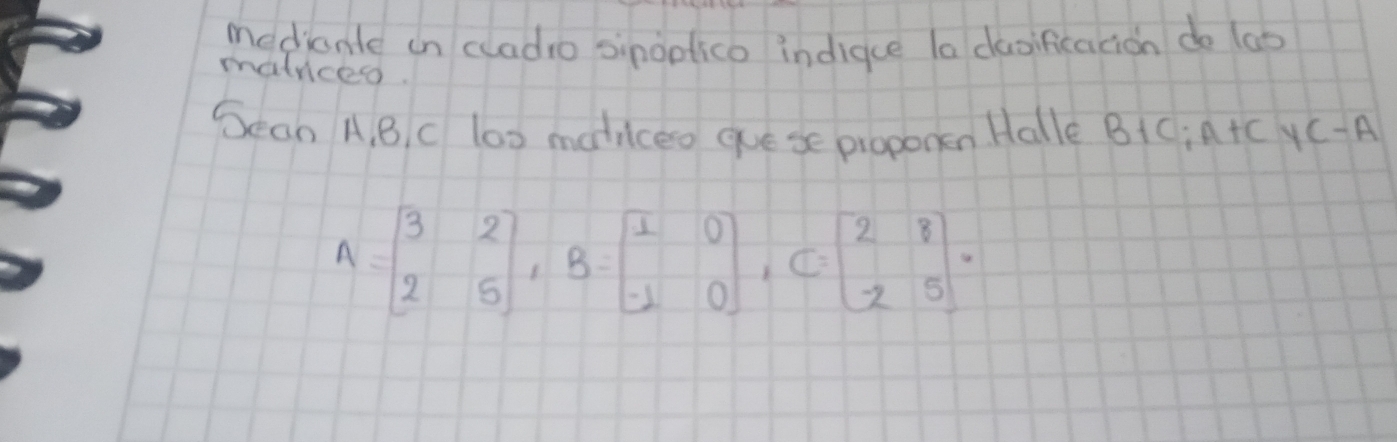 mediante un cuadro sinóptico indique la clasificación de las
matrices.
Sean A,B,C las matrices que se proponen Halle B+C; A+C y C-A
A = [3 2; 2 5], B = [1 0; -1 0], C = [2 8; -2 5].